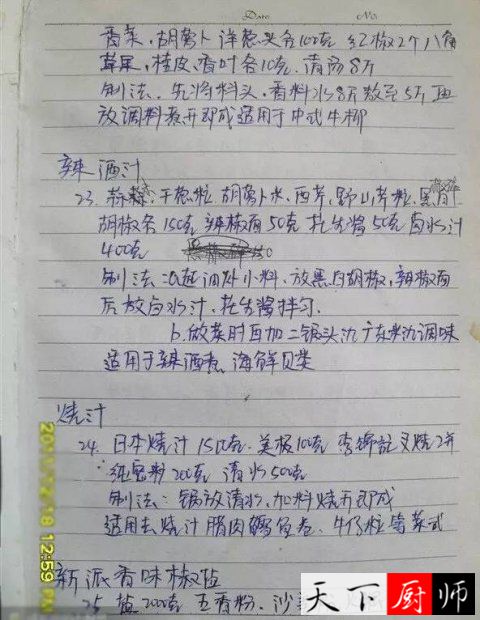 Date No.
香菜，胡萝卜 洋葱头各100克 红椒2个 八角
草果，桂皮，香叶各10克 清汤8斤
制法：先将料头，香料水8斤熬至5斤再
放调料煮开即成适用于中式牛柳
辣酒汁
23. 干葱粒 胡萝卜米，西芹，野山芹粒，黑白
胡椒各150克 辣椒面50克 花生酱50克 卤水汁
400克
制法：a起油炒小料，放黑白胡椒，辣椒面
后放卤水汁，花生酱拌匀．
b．做菜时再加二锅头酒 广东米酒调味
适用于辣酒煮 海鲜贝类
烧汁
24. 日本烧汁1500克．美极100克 李锦記叉烧2瓶
200克 清水500克
制法：锅放清水，加料烧开即成
适用去烧汁腊肉 卷、牛仔粒等菜式
新派香味椒盐
25 盐2000克 五香粉．沙
12:59 PM
天下厨师